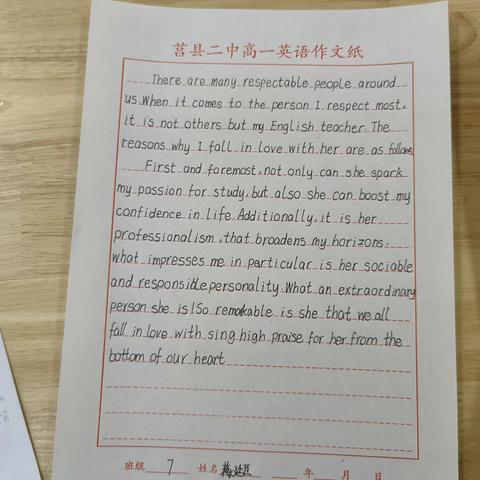 莒县二中高一英语作文纸
There are many respectable people around
us. When it comes to the person I respect most,
it is not others but my English teacher. The
reasons why I fall in love with her are as follows.
First and foremost, not only can she spark
my passion for study, but also she can boost my
confidence in life. Additionally, it is her
professionalism, that broadens my horizons.
what impresses me in particular is her sociable
and responsible personality. What an extraordinary
person she is! So remakable is she that we all
fall in love with sing high praise for her from the
bottom of our heart
班级 7 姓名 年 月 日